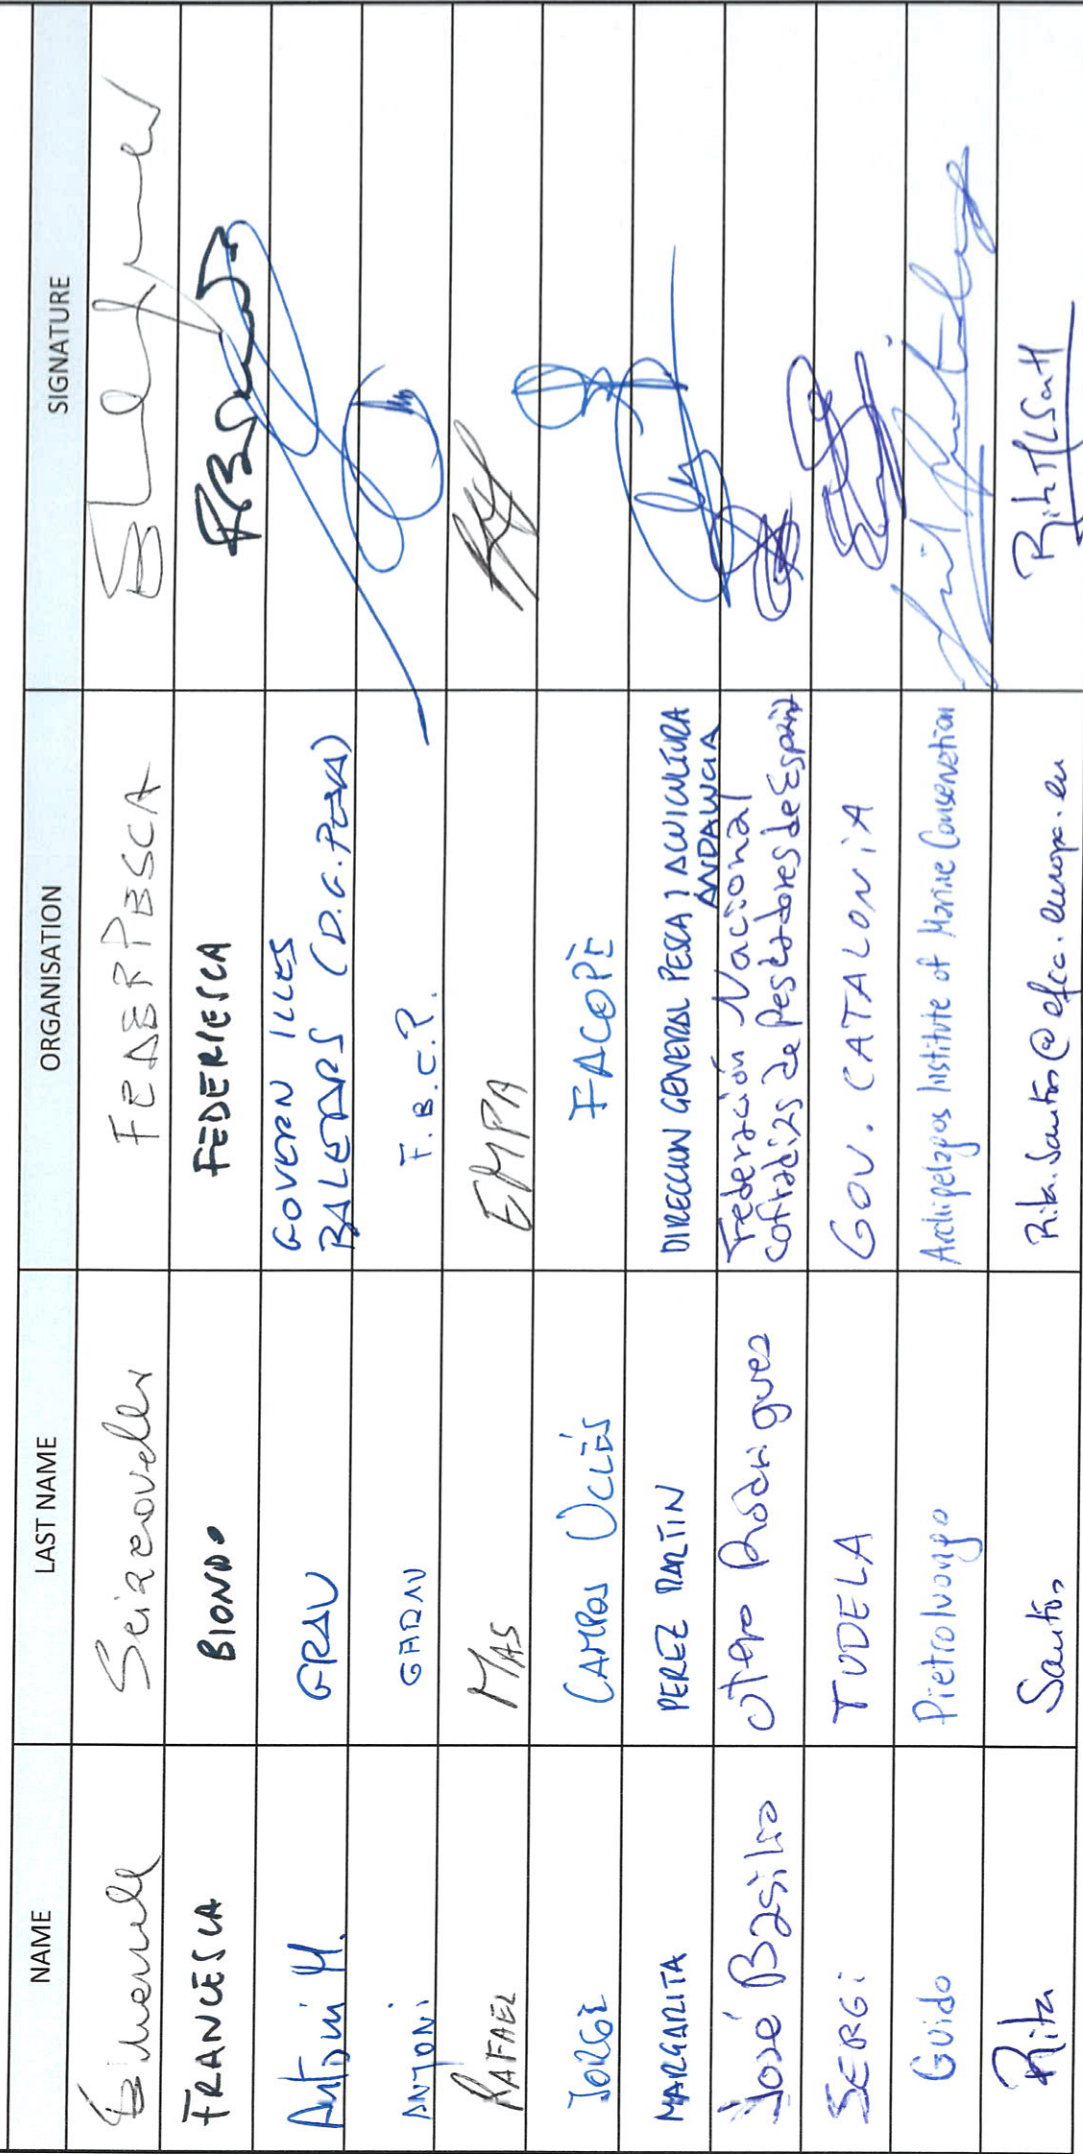 NAME LAST NAME ORGANISATION SIGNATURE
FEDERPESCA
FRANCESCA BIONDO FEDERPESCA
Antoni M. GRAU GOVERN ILLES
BALEARS (D.G. PESCA)
ANTONI GARAU F.B.C.P.
RAFAEL MAS EMPA
JORGE CAMPOS UCLÉS FACOPE
MARGARITA PEREZ MARTIN DIRECCION GENERAL PESCA Y ACUICULTURA
ANDALUCIA
José Basilio Otero Rodriguez Federación Nacional
Cofradías de Pescadores de España
SERGI TUDELA GOV. CATALONIA
Guido Pietroluongo Archipelagos Institute of Marine Conservation
Rita Santos Rita.Santos@efca.europa.eu